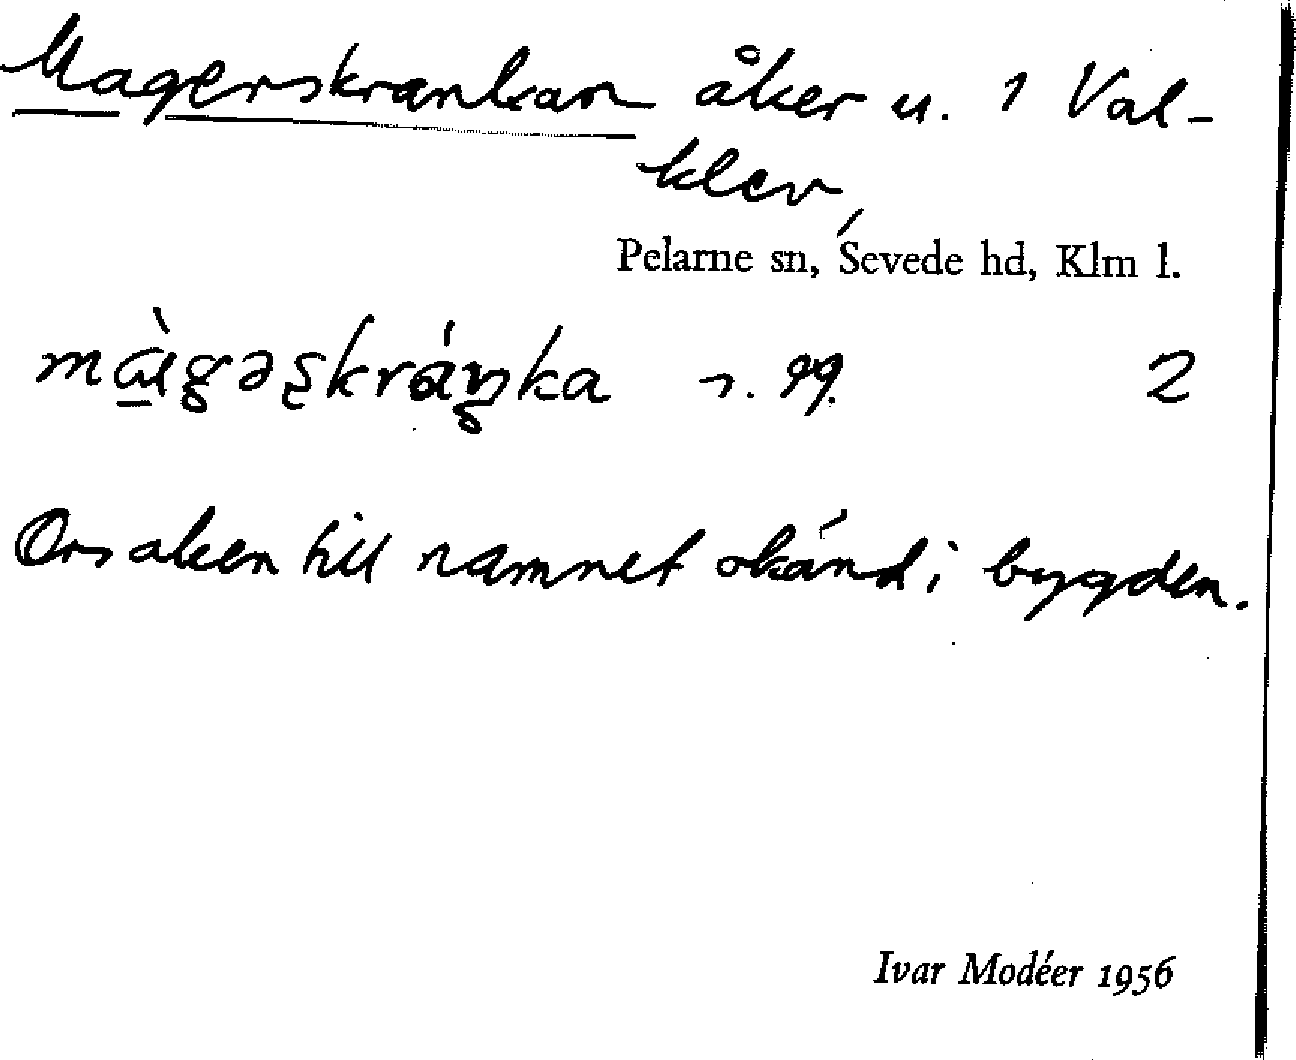 Magerskrankan åker u. 1 Val-
klev,
Pelarne sn, Sevede hd, Klm l.
2
Orsaken till namnet okänd i bygden.
Ivar Modéer 1956